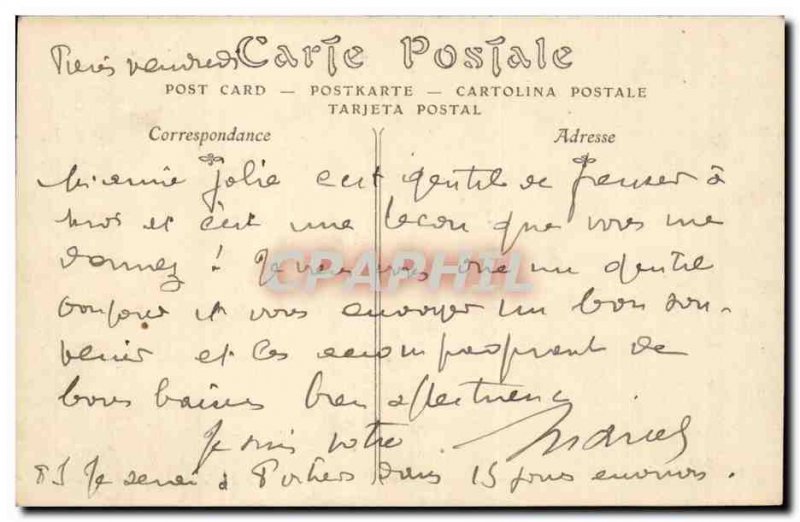 vendredi
Carte Postale
POST CARD — POSTKARTE — CARTOLINA POSTALE
TARJETA POSTAL
Correspondance
Adresse
amie Jolie c'est gentil de penser à
moi et c'est une leçon que vous me
donnez ! Je veux vous dire un gentil
bonjour et vous envoyer un bon sou-
venir et les accompagnant de
bons baisers bien affectueux
Je suis votre Marcel
PS Je serai à Poitiers dans 15 jours environ.
CPAPHIL